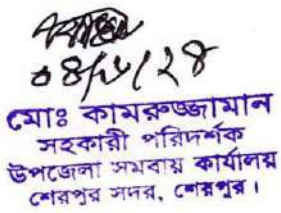 মোঃ কামরুজ্জামান
সহকারী পরিদর্শক
উপজেলা সমবায় কার্যালয়
শেরপুর সদর, শেরপুর।